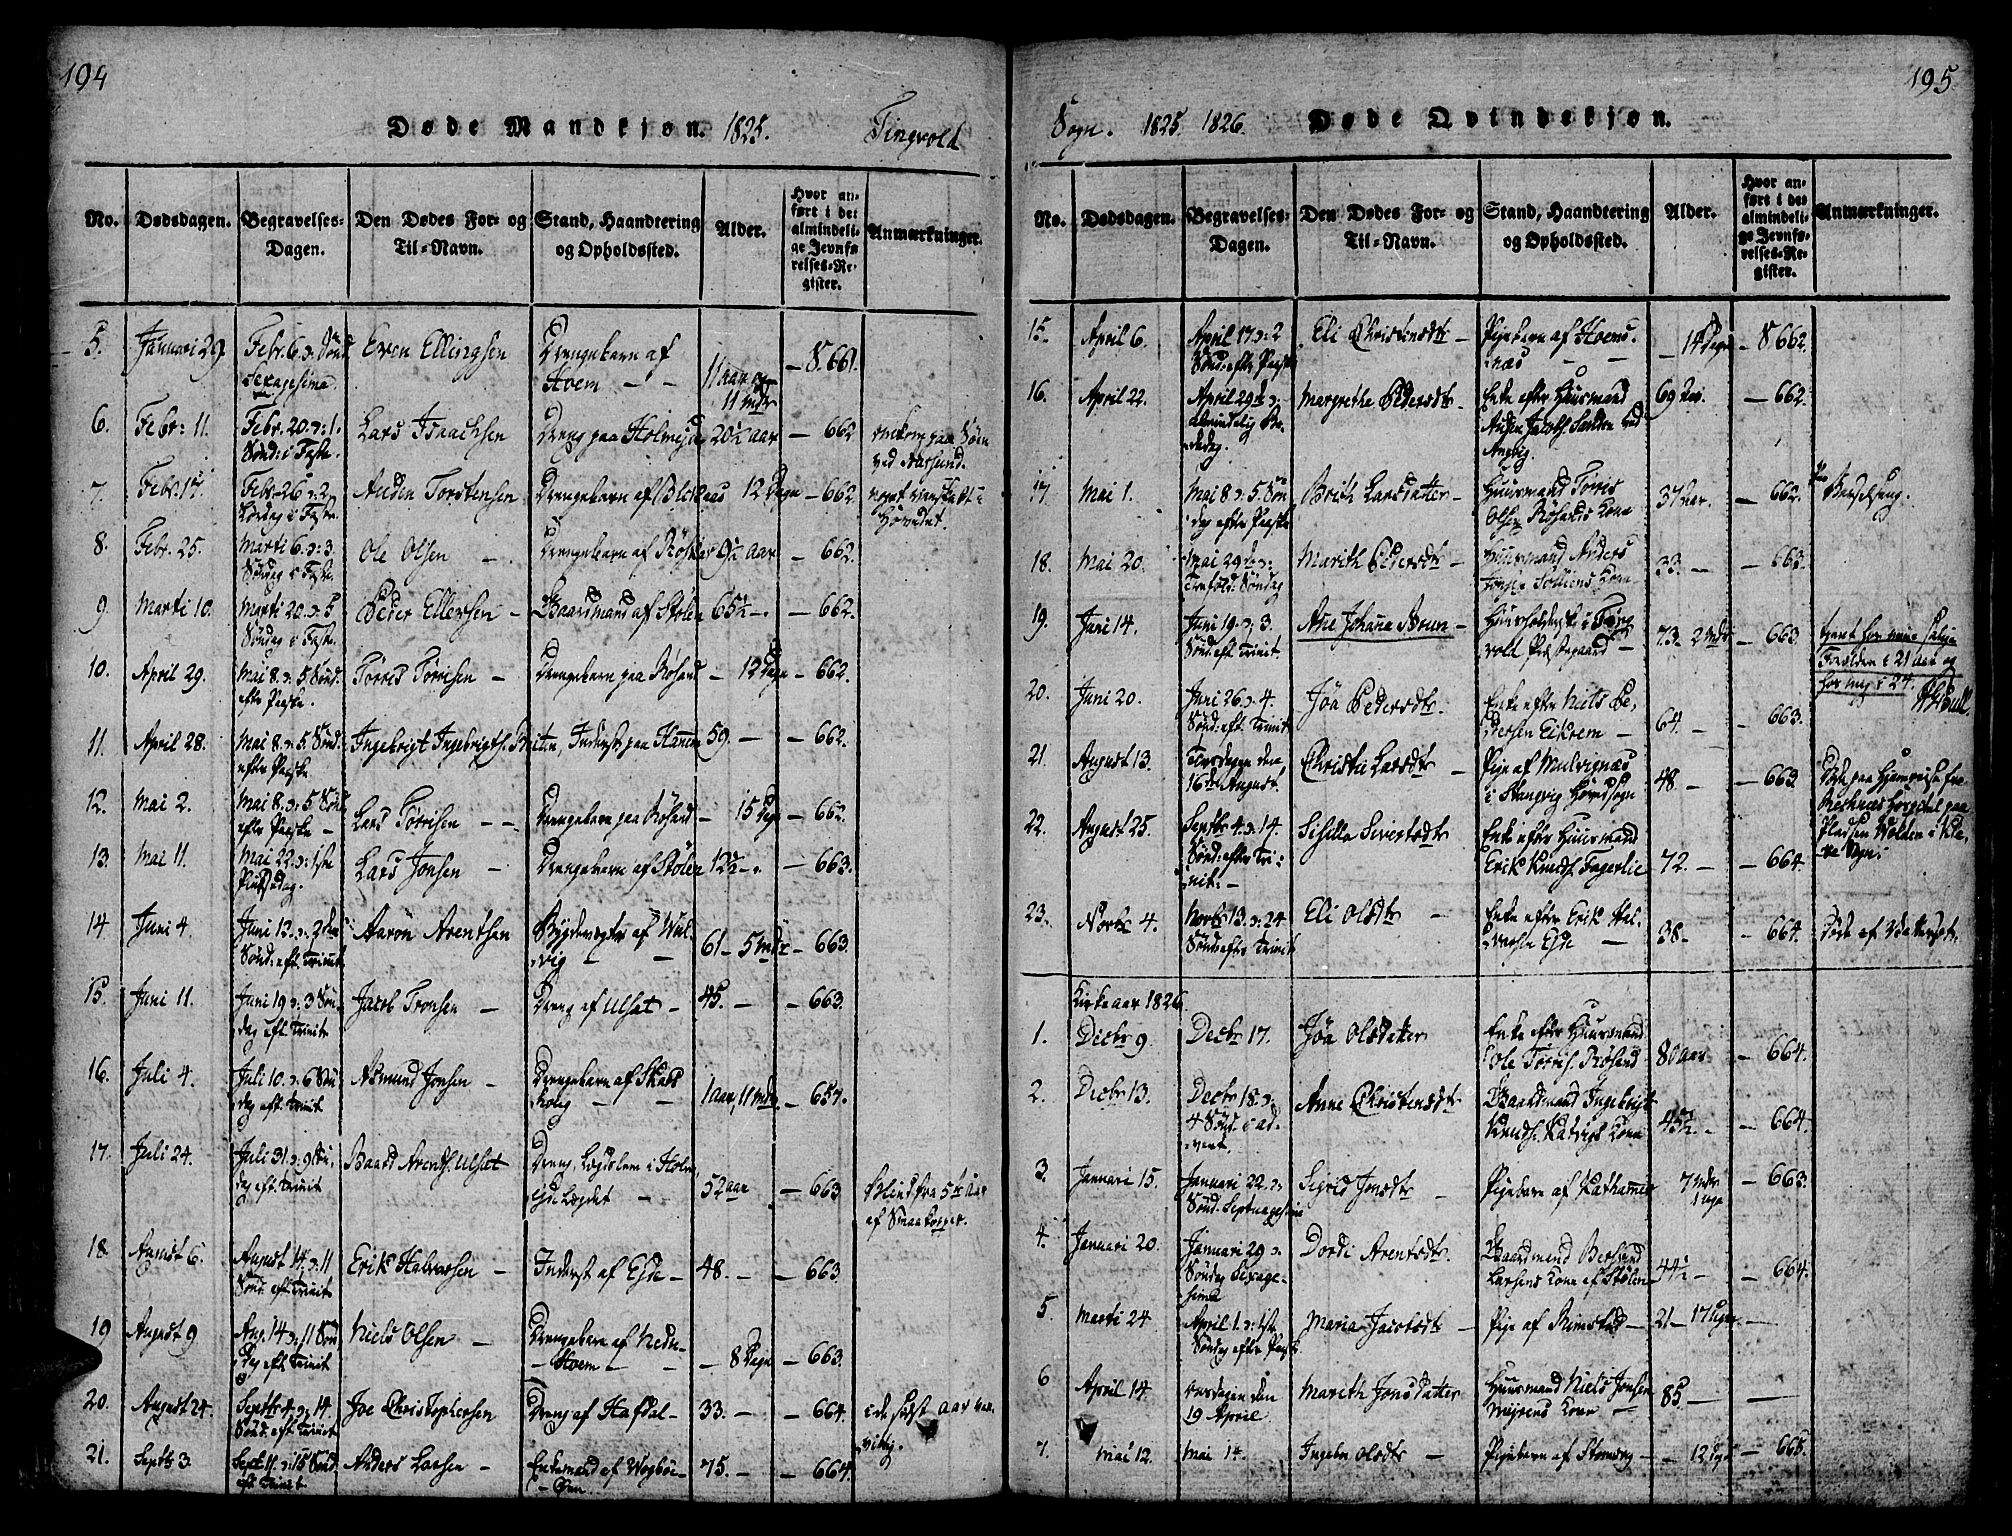 194
Døde Mandkjøn. 1825. Tingvold
No. Dødsdagen. Begravelses-Dagen. Den Dødes For- og Til-Navn. Stand, Haandtering og Opholdssted. Alder. Hvor anført i det almindelige Jevnførelses-Register. Anmærkninger.
5. Januari 29 Febr. 6 ɔ: Sønd Sexagesima Even Ellingsen Drengebarn af Hoem 11 aar og 11 mdr 8. 661.
6. Febr: 11. Febr. 20. ɔ: 1. Sønd: i Faste. Lars Isaachsen Dreng paa 20½ aar 662 omkom paa Søen ved Aarsund.
7. Febr. 17. Febr. 26 ɔ: 2 Lørdag i Faste. Auden Torstensen Drengebarn af 12 Dage 662. i Hovedet.
8. Febr. 25. Marti 6. ɔ: 3. Søndag i Faste. Ole Olsen Drengebarn af 9½ aar 662.
9. Marti 10. Marti 20. ɔ: 5 Søndag i Faste. Peder Ellevsen Gaardmand af Stølen 65½ 662.
10. April 29. Mai 8. ɔ: 5 Sønd. efter Paaske. Tørris Tørrisen Drengebarn paa Røsand 12 Dage 662.
11. April 28. Mai 8. ɔ: 5. Sønd: efter Paaske Ingebrigt Ingebrigts. Inderst paa 59. 662.
12. Mai 2. Mai 8. ɔ: 5 Sønd efter Paaske Lars Tørrisen Drengebarn paa Røsand 15 Dage 662.
13. Mai 11. Mai 22. ɔ: 1ste Pintsedag. Lars Jonsen Drengebarn af Stølen 12½ 663.
14 Juni 4. Juni 12. ɔ: 2den Sønd. eft. Trinit. Aaron Arentsen af Wulvig 61 - 5 mdr 663
15. Juni 11. Juni 19 ɔ: 3 Søndag eft. Trinit Jacob Tronsen Dreng af Ulset 45. 663
16. Juli 4. Juli 10. ɔ: 6 Søndag eft. Trinit Asmund Jonsen Drengebarn af 1 aar, 11 mdr. 654.
17. Juli 24. Juli 31. ɔ: 9 Søndag eft. Trinit Baard Arends. Ulset Dreng, Lægdslem i Lægdet 52 aar 663 Blind fra 5te Aar af Smaakopper.
18. August 6. August 14. ɔ: 11 Sønd. eft. Trinit Erik Halvorsen Inderst af Ejde 48. 663.
19 August 9 Aug. 14 ɔ: 11 Søndag eft Trinit Niels Olsen Drengebarn af Nedre Hoem 8 Dage 663.
20. August 24. Septbr 4. ɔ: 14. Sønd. eft Trinit Joe Christophersen Dreng af Hafdal 33. 664. i de sidst aar
21. Septbr 3 Sept. 11. ɔ: 15 Sønd. eft Trinit. Anders Larsen Enkemand af 75. 664.
195
Sogn. 1825. 1826. Døde Qvindekjøn.
No. Dødsdagen. Begravelses-Dagen. Den Dødes For- og Til-Navn. Stand, Haandtering og Opholdssted. Alder. Hvor anført i det almindelige Jevnførelses-Register. Anmærkninger.
15. April 6. April 17. ɔ: 2 Sønd. efter Paaske Eli Christensdtr Pigebarn af Hoemsnæs 14 Dage 8 662.
16. April 22. April 29de ɔ: almindelig Bededag. Margrethe Pedersdtr Enke efter Huusmand Jacobs. ved Angvig. 69 Aar. 662.
17. Mai 1. Mai 8 ɔ: 5. Søndag efter Paaske Brith Larsdatter Huusmand Tørris Olsen Røsands Kone 37 Aar. 662. Barselseng.
18. Mai 20. Mai 29de ɔ: Trefold. Søndag Marith Pedersdtr Huusmand Anders Kone 33. 663.
19. Juni 14. Juni 19. ɔ: 3. Sønd. eft. Trinit. Ane Johana Brun Huusholderske i Tingvold Præstegaard 73. 2 mdr 663 tjent hos mine salige Forældre i 21 Aar og hos mig i 24. Bull.
20. Juni 20. Juni 26. ɔ: 4. Sønd. eft. Trinit Jøa Pedersdtr. Enke efter Niels Pedersen Eikrem 64. 663.
21. August 13. Tirsdagen den 16de August. Christie Larsdtr Pige af i Stangvig Hovedsogn 48 663 Døde paa Hjemreise fra Reknæs Hospital paa Pladsen Wolden i
22. August 25. Septbr. 4. ɔ: 14. Sønd: efter Trinit: Sisilla Sivertsdtr Enke efter Huusmand Erik Knuds. Fagerlie 72. 664.
23. Novbr 4. Novbr 13. ɔ: 24 Sønd: efter Trinit. Eli Olsdtr Enke efter Erik Halvorsen Ejde 38. 664. Døde af
Kirkeaar 1826
1. Decbr 9. Decbr 17. Jøa Olsdatter Enke efter Huusmand Ole Tørris. Røsand 80 aar 664.
2. Decbr 13. Decbr 18. ɔ: 4 Sønd. i advent. Anne Christensdtr Gaardmand Ingebrigt Knuds. Kone 45½ 664.
3. Januari 15. Januari 22. ɔ: Sønd. Septuagesima Sigrid Jonsdtr Pigebarn af 7 mdr 1 uge 663.
4. Januari 20. Januari 29 ɔ: Søndag Sexagesima Dordi Arentsdtr. Gaardmand Larsens Kone af Stølen 44½ 664.
5 Marti 24 April 1. ɔ: 1ste Søndag efter Paask. Maria Jacobsdtr Pige af Rimstad 21 - 17 uger
6 April 14 Onsdagen den 19 April. Marith Jonsdatter Huusmand Niels Jonsen Kone 85
7. Mai 12. Mai 14. Ingebor Olsdtr Pigebarn af 12 uger 665.